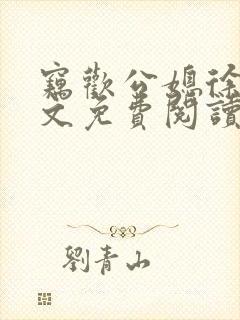 竊歡公媳徐
文免費閱讀
劉青山